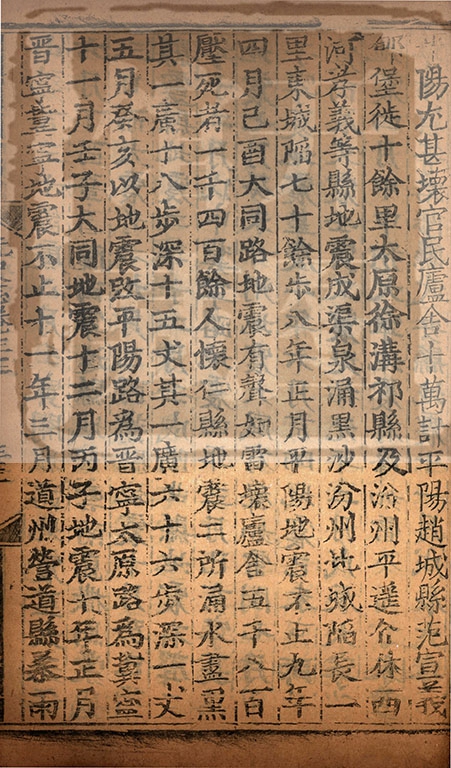 平陽尤甚壞官民廬舍十萬計平陽趙城縣范宣義
郇堡徙十餘里太原徐溝祁縣及汾州平遥介休西
河孝義等縣地震成渠泉涌黑沙汾州北城陷長一
里東城陷七十餘步八年正月平陽地震不止九年
四月己酉大同路地震有聲如雷壞廬舍五千八百
壓死者一千四百餘人懷仁縣地震二所涌水盡黑
其一廣十八步深十五丈其一廣六十六步深一丈
五月癸亥以地震改平陽路爲晋寧太原路爲冀寧
十一月壬子大同地震十二月丙子地震十年正月
晋寧冀寧地震不止十一年三月道州營道縣暴雨